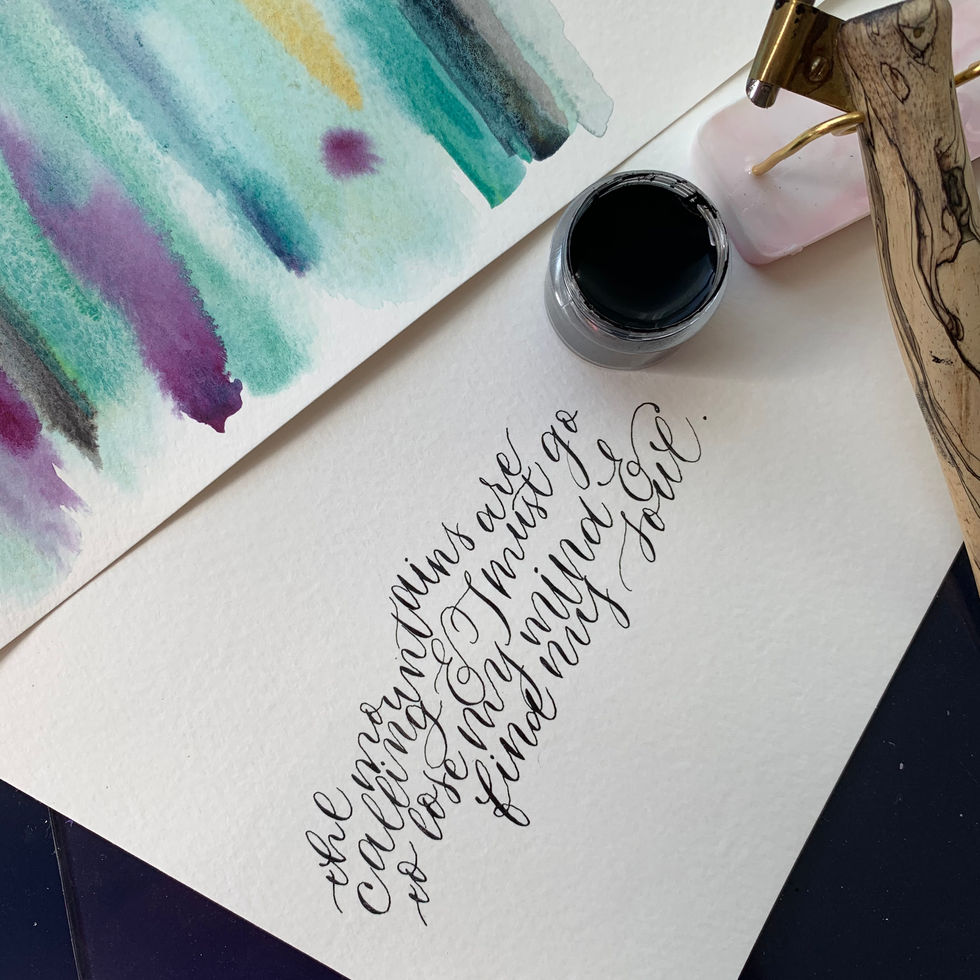 the mountains are
calling & I must go
to lose my mind &
find my soul.